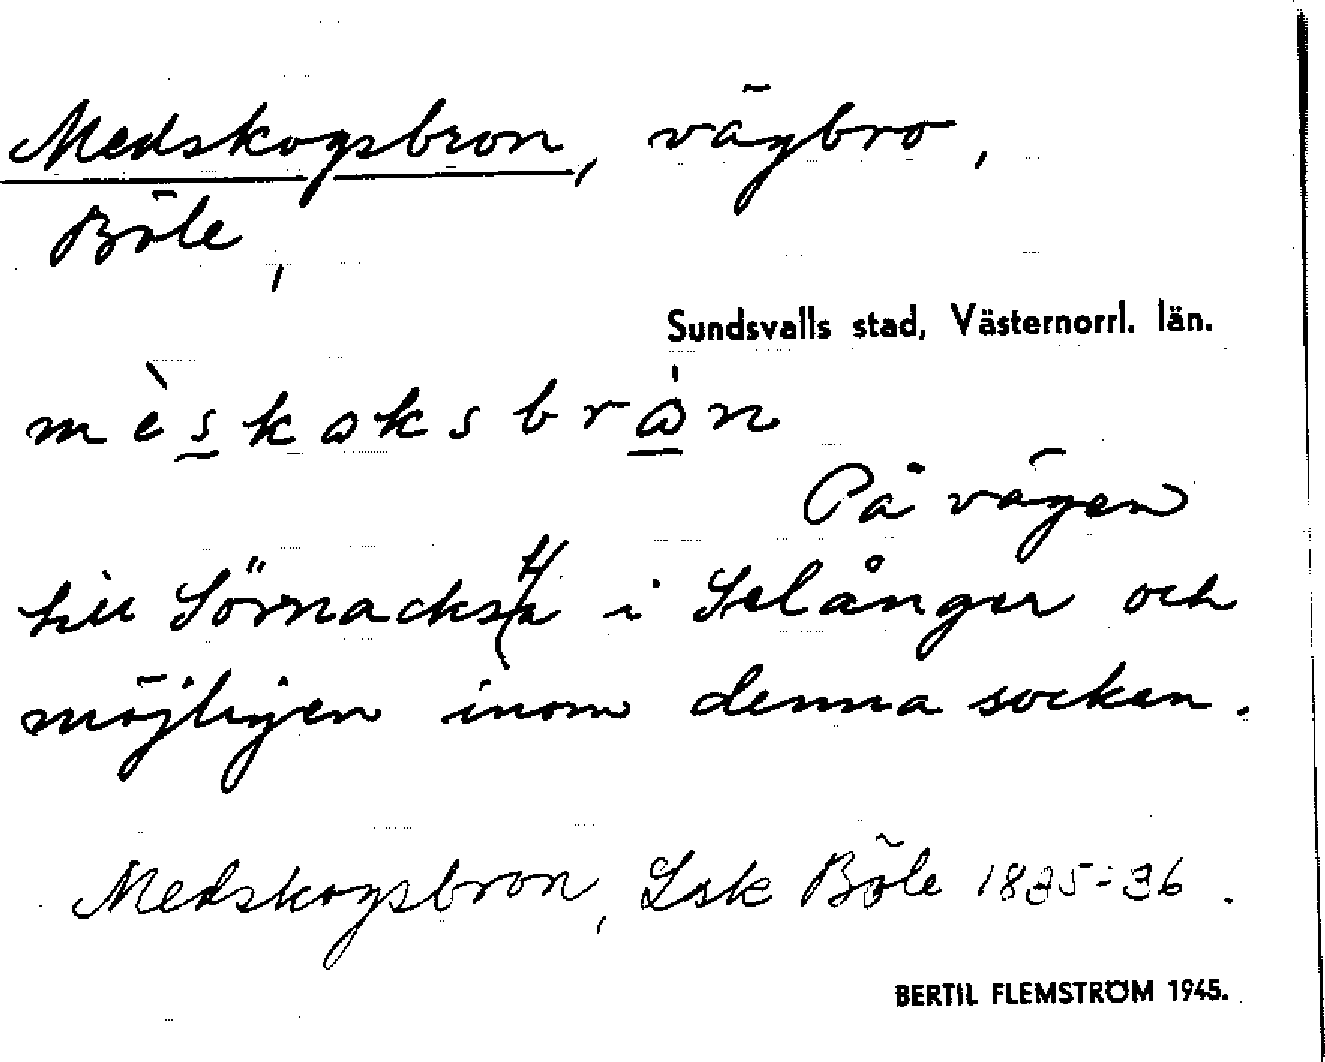 Medskogsbron, vägbro,
Böle,
Sundsvalls stad, Västernorrl. län.
mèskɷksbrɷ̀n
På vägen
till Sörnacksta i Selånger och
möjligen inom denna socken.
Medskogsbron, Lsk Böle 1835-36.
BERTIL FLEMSTRÖM 1945.